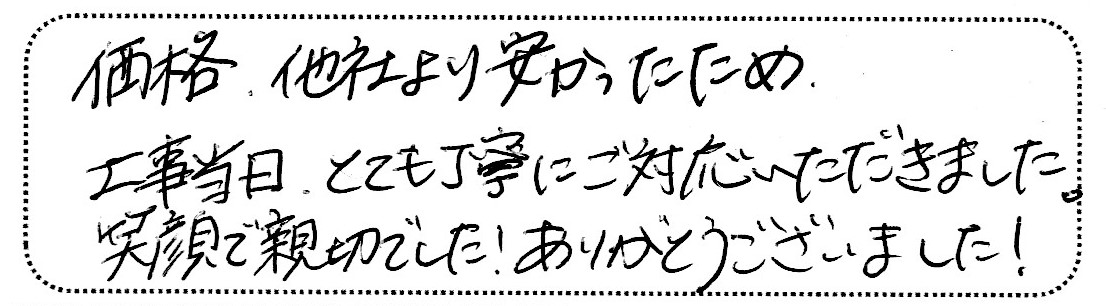 価格、他社より安かったため.
工事当日、とても丁寧にご対応いただきました。
笑顔で親切でした！ありがとうございました！